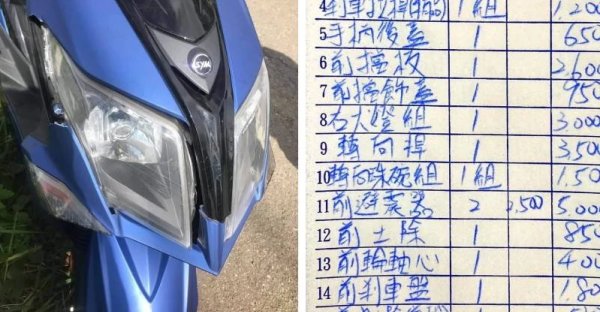 SYM
4 剎車拉桿 1組 1.200
5 手柄後蓋 1 650
6 前擋板 1 2.600
7 前擋飾蓋 1 950
8 右大燈組 1 3.000
9 轉向桿 1 3.500
10 轉向珠碗組 1組 1.50
11 前避震器 2 2,500 5.00
12 前土除 1 850
13 前輪軸心 1 400
14 前剎車盤 1 1.80